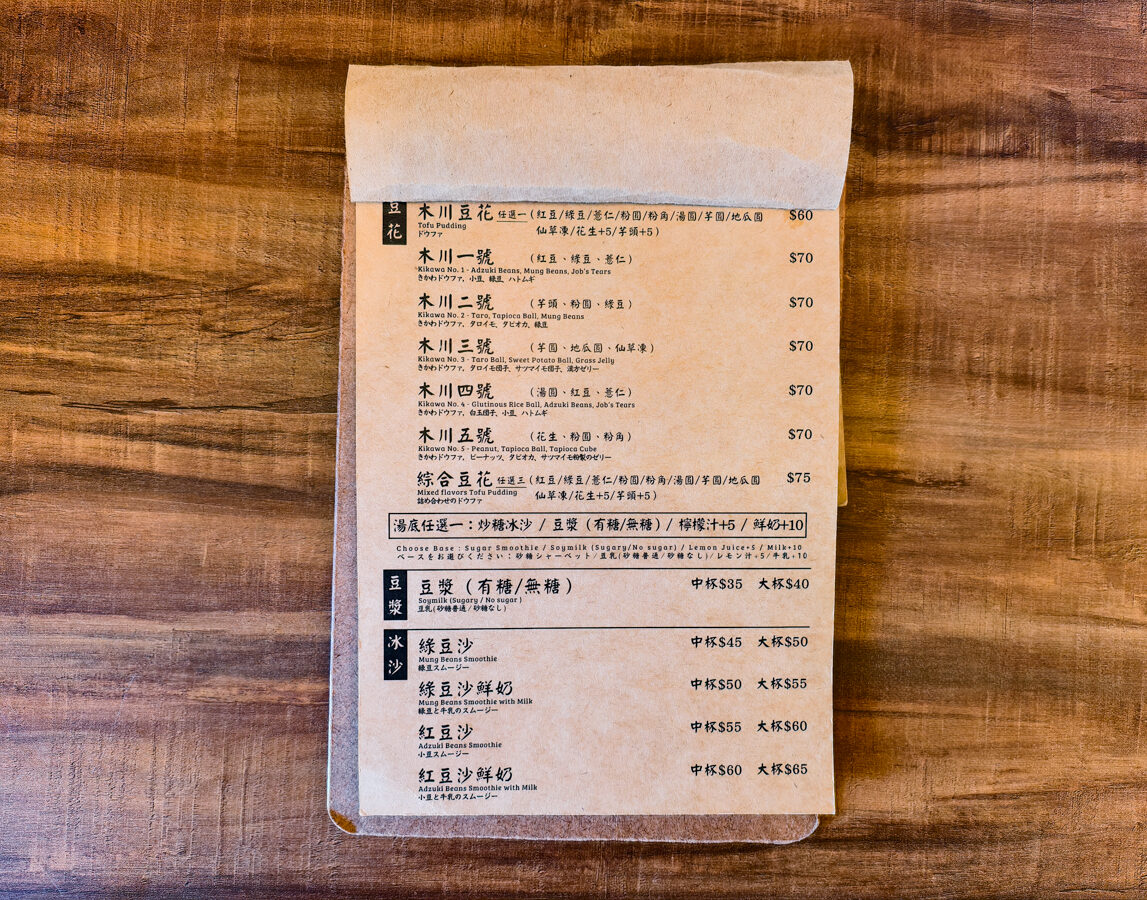 豆花
木川豆花 任選一(紅豆/綠豆/薏仁/粉圓/粉角/湯圓/芋圓/地瓜圓 $60
Tofu Pudding 仙草凍/花生+5/芋頭+5)
ドウファ
木川一號 (紅豆、綠豆、薏仁) $70
Kikawa No. 1 - Adzuki Beans, Mung Beans, Job's Tears
きかわドウファ, 小豆, 緑豆, ハトムギ
木川二號 (芋頭、粉圓、綠豆) $70
Kikawa No. 2 - Taro, Tapioca Ball, Mung Beans
きかわドウファ, タロイモ, タピオカ, 緑豆
木川三號 (芋圓、地瓜圓、仙草凍) $70
Kikawa No. 3 - Taro Ball, Sweet Potato Ball, Grass Jelly
きかわドウファ, タロイモ団子, サツマイモ団子, 漢方ゼリー
木川四號 (湯圓、紅豆、薏仁) $70
Kikawa No. 4 - Glutinous Rice Ball, Adzuki Beans, Job's Tears
きかわドウファ, 白玉団子, 小豆, ハトムギ
木川五號 (花生、粉圓、粉角) $70
Kikawa No. 5 - Peanut, Tapioca Ball, Tapioca Cube
きかわドウファ, ピーナッツ, タピオカ, サツマイモ粉製のゼリー
綜合豆花 任選三(紅豆/綠豆/薏仁/粉圓/粉角/湯圓/芋圓/地瓜圓 $75
Mixed flavors Tofu Pudding 仙草凍/花生+5/芋頭+5)
詰め合わせのドウファ
湯底任選一：炒糖冰沙 / 豆漿 (有糖/無糖) / 檸檬汁+5 / 鮮奶+10
Choose Base : Sugar Smoothie / Soymilk (Sugary/No sugar) / Lemon Juice+5 / Milk+10
ベースをお選びください：砂糖シャーベット/豆乳(砂糖普通/砂糖なし)/レモン汁+5/牛乳+10
豆漿
豆漿 (有糖/無糖) 中杯$35 大杯$40
Soymilk (Sugary / No sugar )
豆乳(砂糖普通/砂糖なし)
冰沙
綠豆沙 中杯$45 大杯$50
Mung Beans Smoothie
緑豆スムージー
綠豆沙鮮奶 中杯$50 大杯$55
Mung Beans Smoothie with Milk
緑豆と牛乳のスムージー
紅豆沙 中杯$55 大杯$60
Adzuki Beans Smoothie
小豆スムージー
紅豆沙鮮奶 中杯$60 大杯$65
Adzuki Beans Smoothie with Milk
小豆と牛乳のスムージー